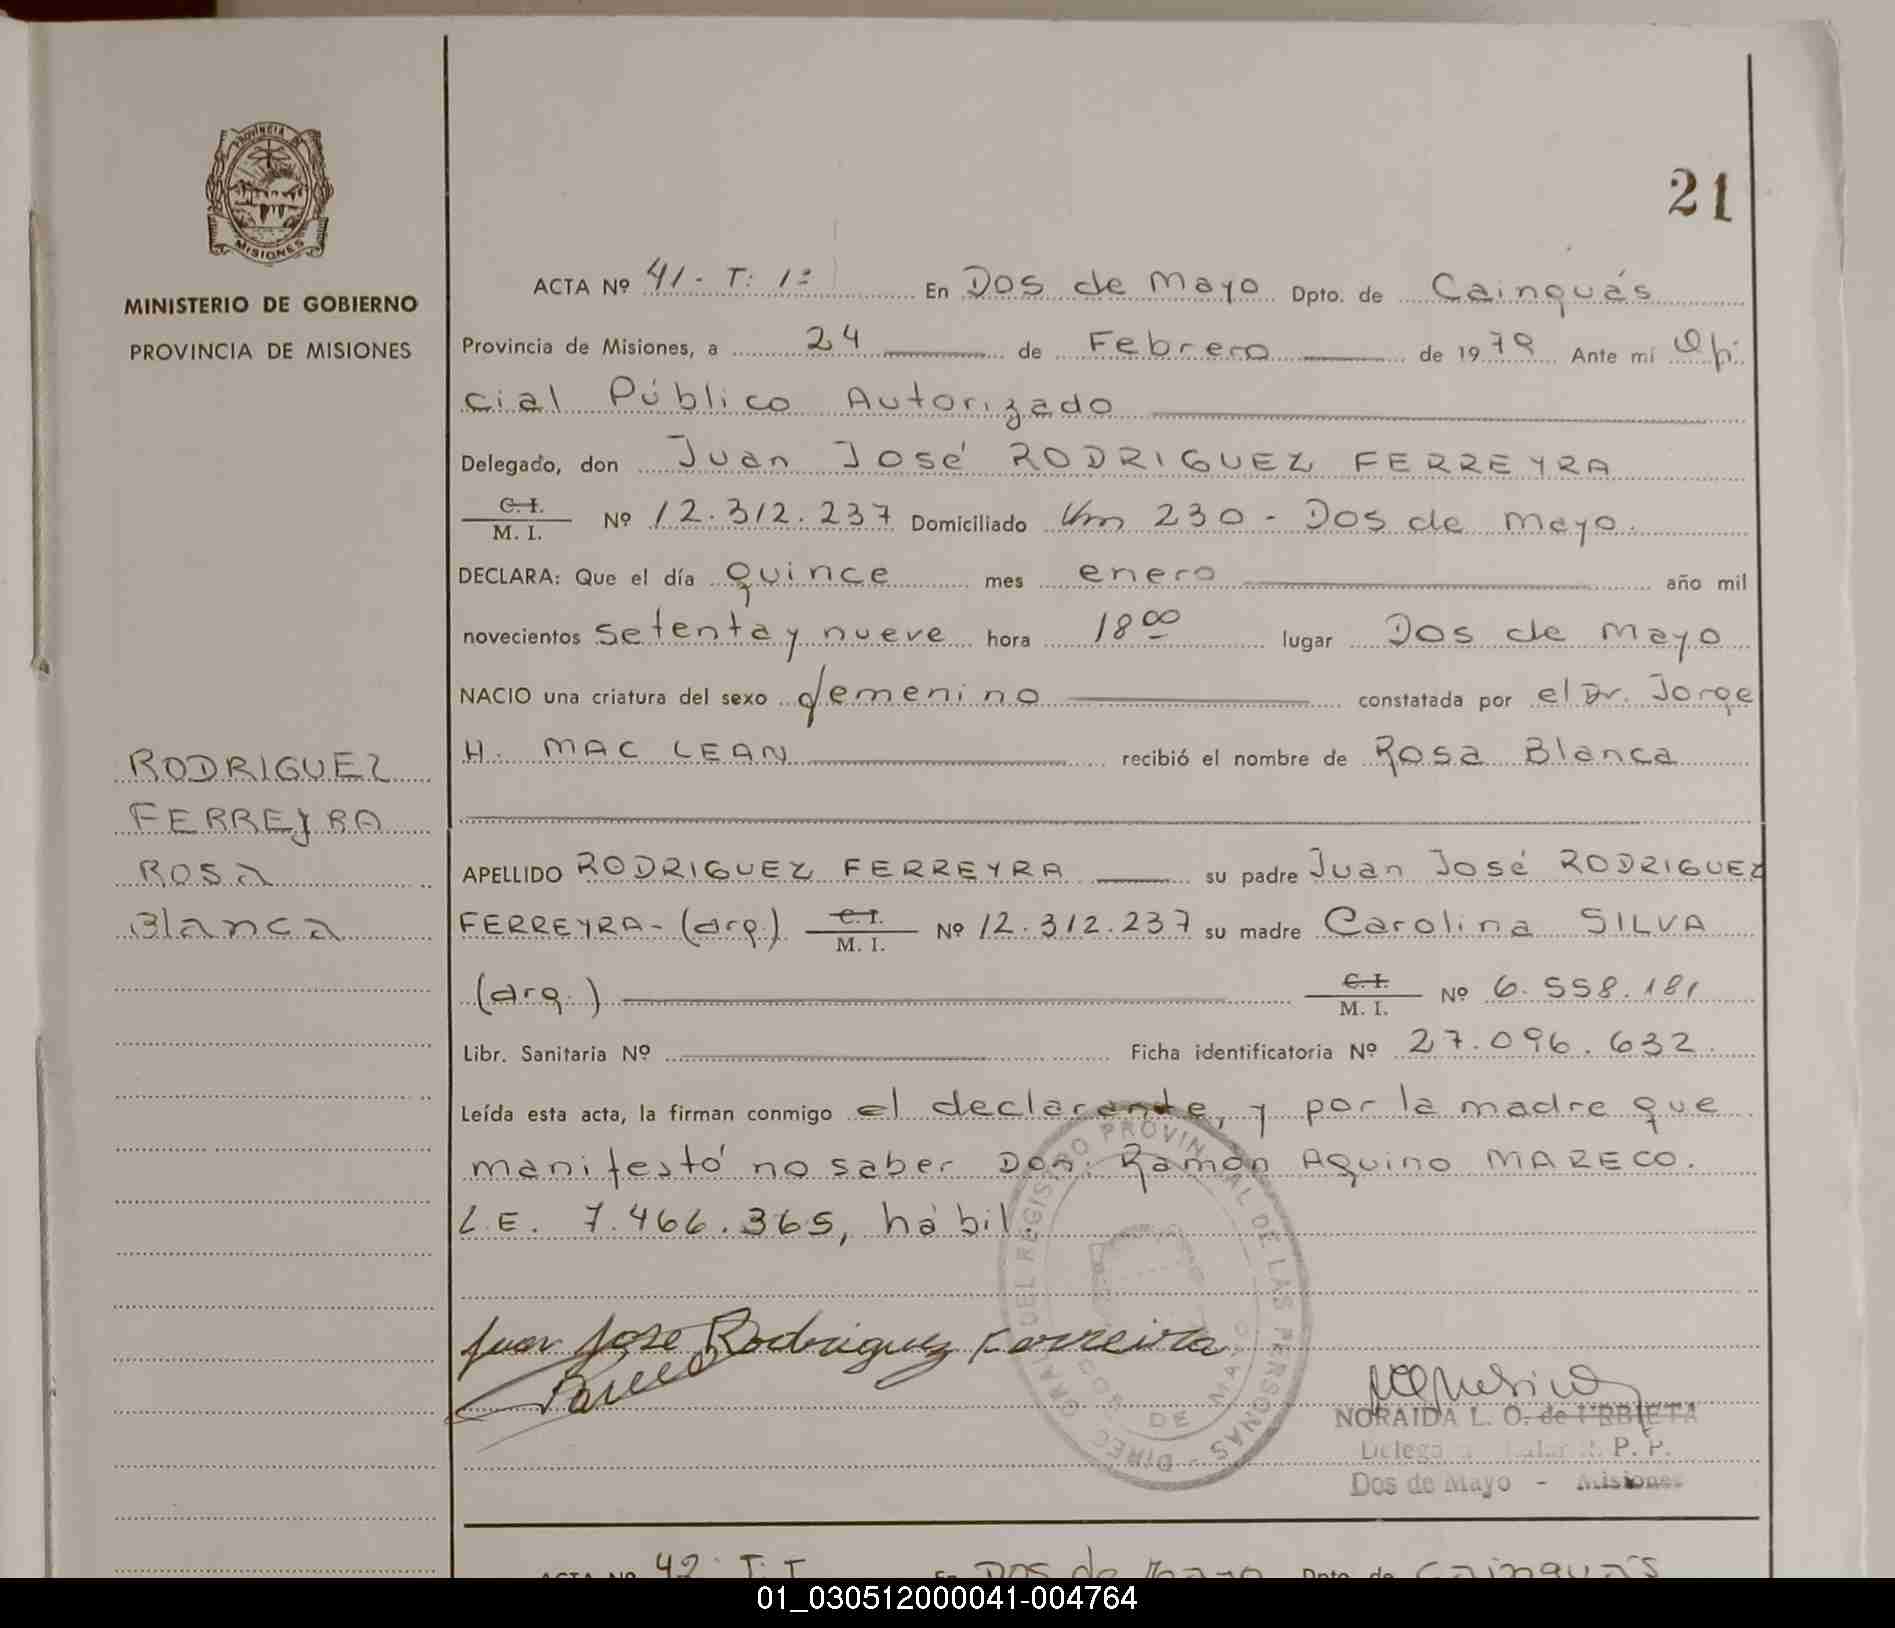 PROVINCIA DE
MISIONES
MINISTERIO DE GOBIERNO
PROVINCIA DE MISIONES
21
ACTA Nº 41 - T: 1º En Dos de Mayo Dpto. de Cainguás
Provincia de Misiones, a 24 de Febrero de 1979 Ante mí Ofi
cial Público Autorizado
Delegado, don Juan José RODRIGUEZ FERREYRA
C. I.
M. I. Nº 12.312.237 Domiciliado Km 230 - Dos de Mayo.
DECLARA: Que el día quince mes enero año mil
novecientos setenta y nueve hora 18 00 lugar Dos de Mayo
NACIO una criatura del sexo femenino constatada por el Dr. Jorge
H. MAC LEAN recibió el nombre de Rosa Blanca
RODRIGUEZ
FERREYRA
ROSA
Blanca
APELLIDO RODRIGUEZ FERREYRA su padre Juan José RODRIGUEZ
FERREYRA - (arg.) C. I. M. I. Nº 12.312.237 su madre Carolina SILVA
(arg.) C. I. M. I. Nº 6.558.181
Libr. Sanitaria Nº Ficha identificatoria Nº 27.096.632
Leída esta acta, la firman conmigo el declarante, y por la madre que
manifestó no saber Don: Ramón Aquino MARECO.
L.E. 7.466.365, hábil.
DIREC. GRAL. DEL REGISTRO PROVINCIAL DE LAS PERSONAS
DOS DE MAYO
Juan Jose Rodriguez Ferreira
NORAIDA L. O. de URBIETA
P. P.
Dos de Mayo - Misiones
ACTA Nº 42 T: I En Dos de Mayo Dpto. de Cainguás
01_030512000041-004764